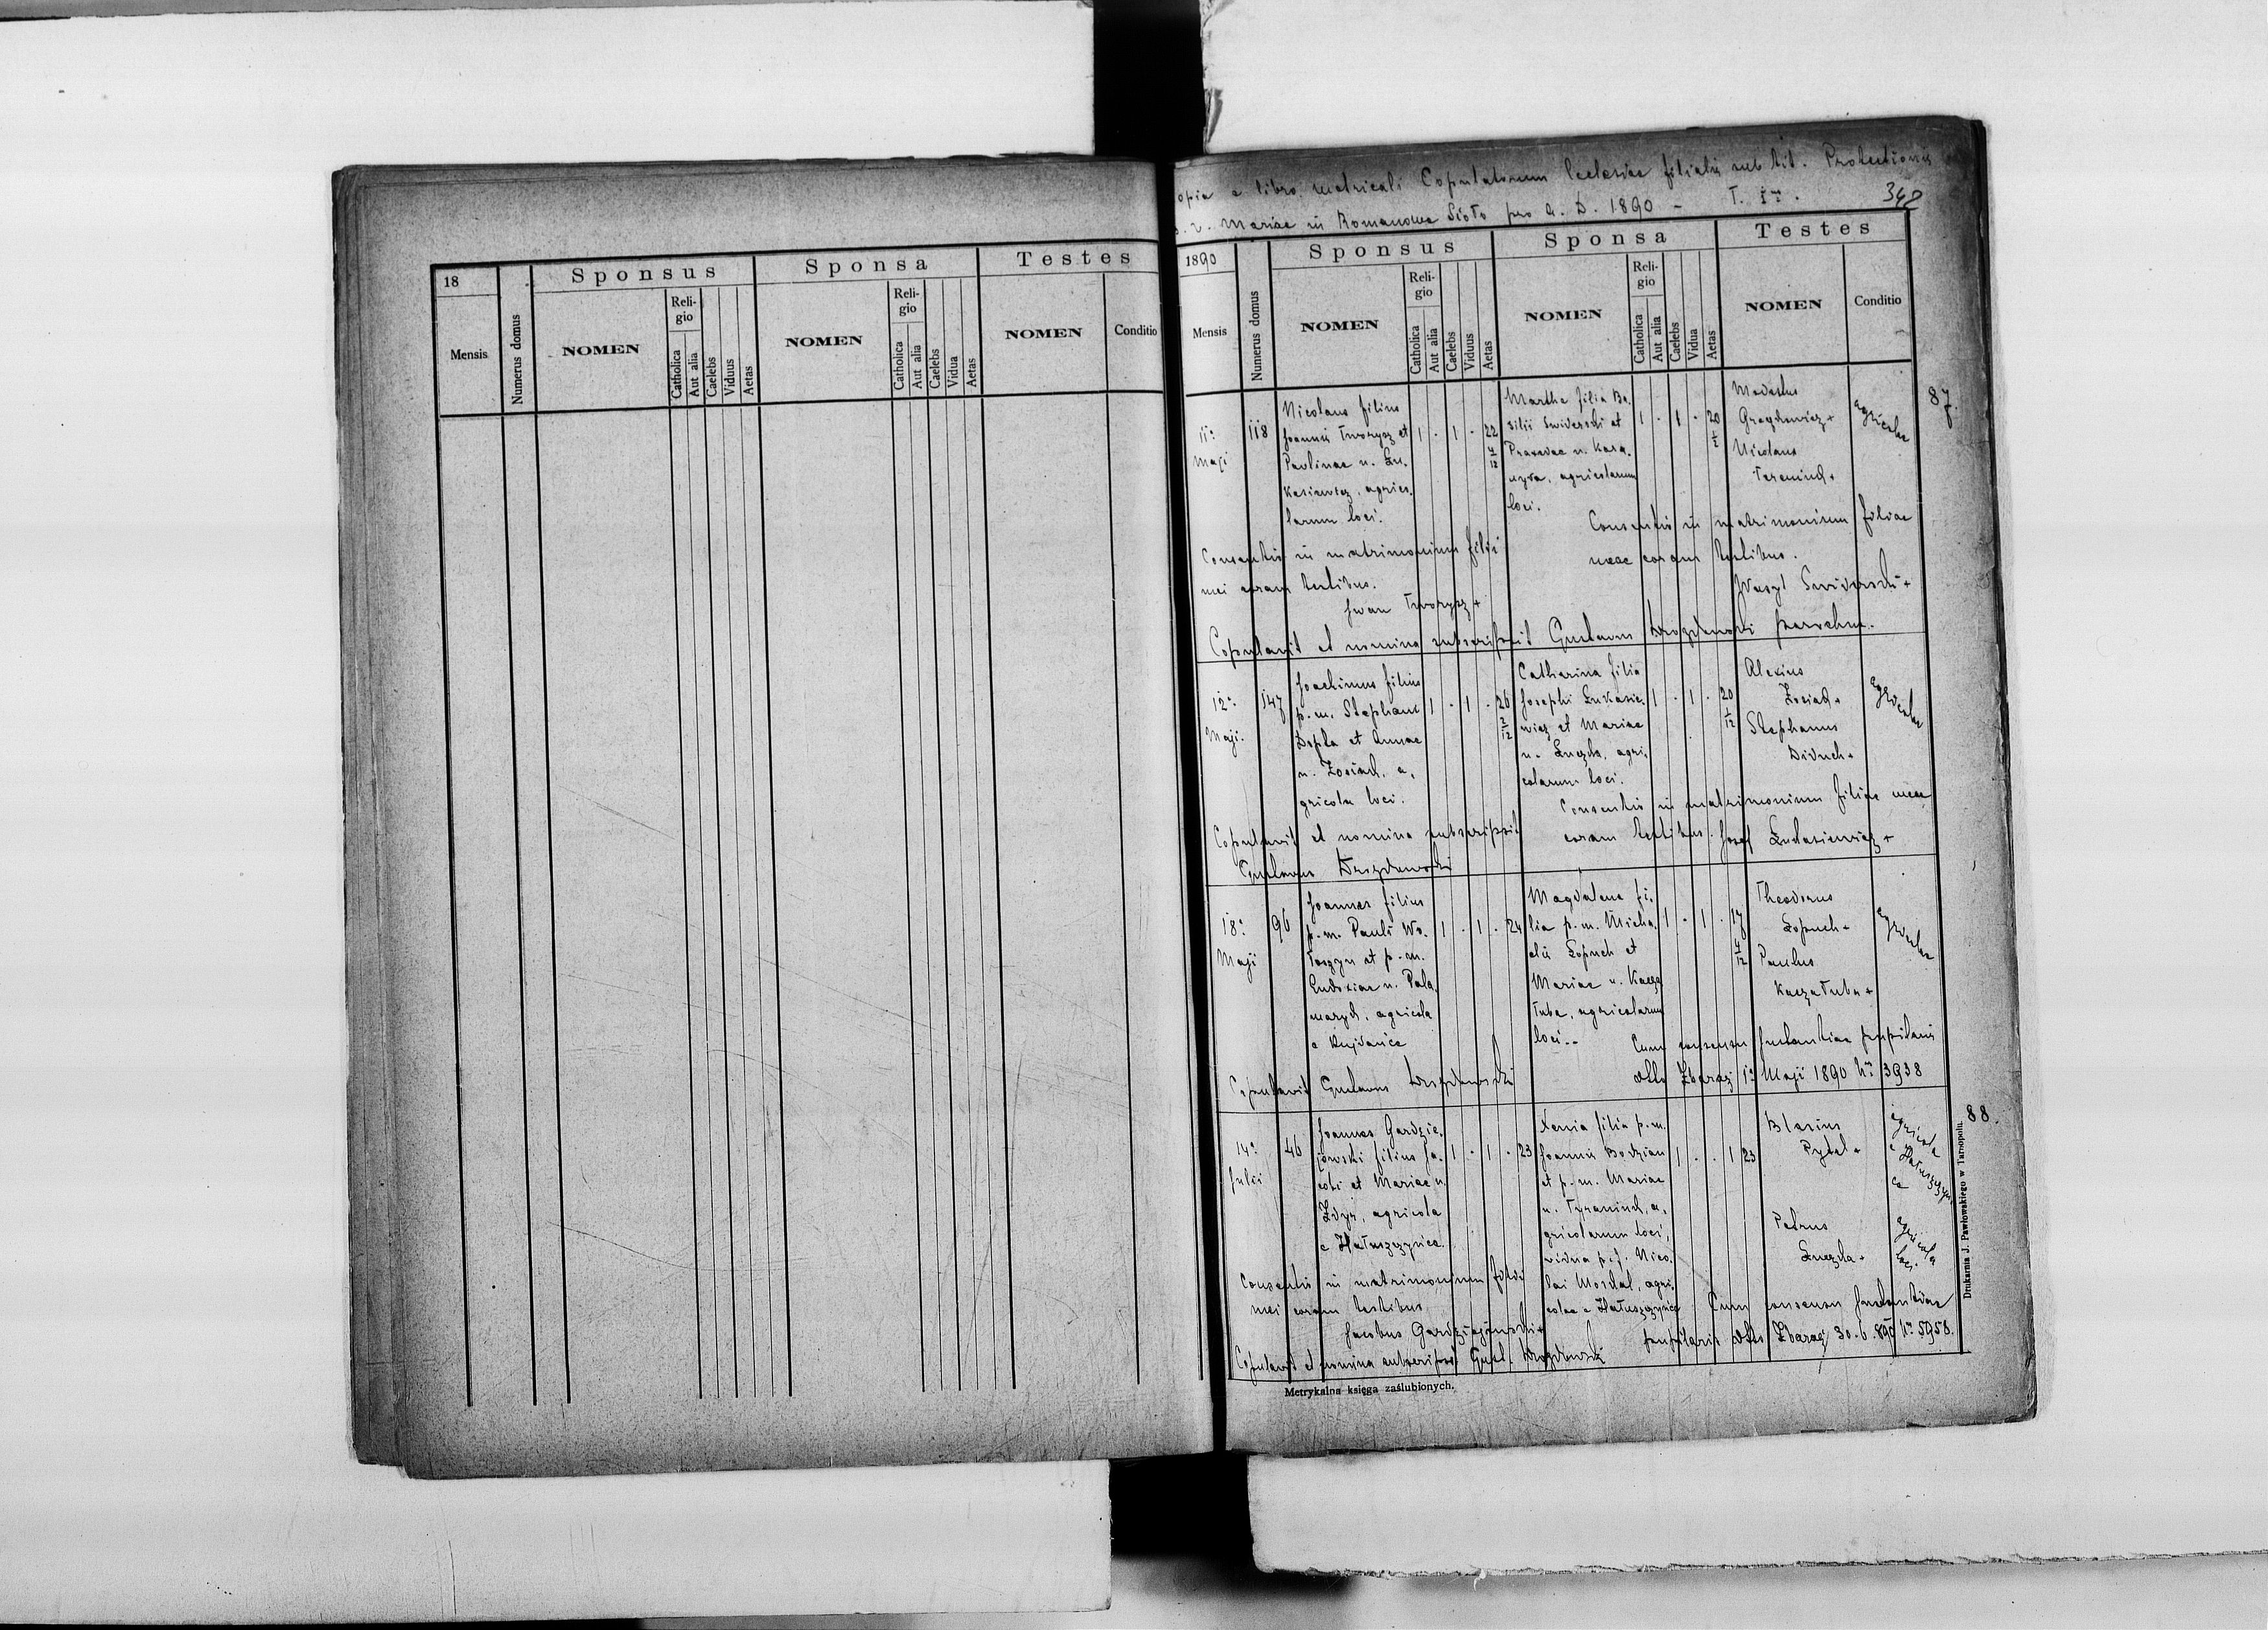 18
Mensis
Numerus domus
Sponsus
NOMEN
Religio
Catholica
Aut alia
Caelebs
Viduus
Aetas
Sponsa
NOMEN
Religio
Catholica
Aut alia
Caelebs
Vidua
Aetas
Testes
NOMEN
Conditio
opia e libro metricali Copulatorum Ecclesiae filialis sub tit. Protectionis
B. V. Mariae in Romanowe Sioło pro A. D. 1890 - T. I
342
1890
Mensis
Numerus domus
Sponsus
NOMEN
Religio
Catholica
Aut alia
Caelebs
Viduus
Aetas
Sponsa
NOMEN
Religio
Catholica
Aut alia
Caelebs
Vidua
Aetas
Testes
NOMEN
Conditio
87.
11
Maji
118
Nicolaus filius
Joannis Tworysz et
Paulinae n. Łu-
kasiewicz, agrico-
larum loci.
1 . 1 . 22 4/12
Martha filia Ba-
silii Swiderski et
agricolarum
loci.
1 . 1 . 20
Modestus
Nicolaus
agricolae
Consentio in matrimonium filii
mei coram testibus.
Iwan Tworysz +
Consentio in matrimonium filiae
meae coram testibus.
Wasyl Swiderski +
Copulavit et nomina subscripsit Gustavus Drozdowski parochus.
12
Maji.
147
Joachimus filius
p. m. Stephani
et Annae
n. Zosiach, a-
gricola loci.
1 . 1 . 26 2/12
Catharina filia
Josephi Łukasie-
wicz et Mariae
n. Łuczka, agri-
colarum loci.
1 . 1 . 20 1/12
Alexius
Zosiach +
Stephanus
Diduch +
agricolae
Consentio in matrimonium filiae meae
coram testibus. Josef Łukasiewicz +
Copulavit et nomina subscripsit
Gustavus Drozdowski
18
Maji
96
Joannes filius
p. m. Pauli Wo-
łoszyn et p. m.
Eudoxiae n. Pala-
marych, agricola
e Kujdańce
1 . 1 . 24
Magdalena fi-
lia p. m. Micha-
elis Łopuch et
Mariae n. Kacza-
łuba, agricolarum
loci..
1 . 1 . 17 4/12
Theodorus
Łopuch +
Paulus
Kaczałuba +
agricolae
Cum consensu Instantiae pupillaris
dtto Zbaraż 1 Maji 1890 Nr 3938
Copulavit Gustavus Drozdowski
88.
14
Julii
46
Joannes Gardzie-
jowski filius Ja-
cobi et Mariae n.
agricola
e Hałuszczyńce.
1 . 1 . 23
Xenia filia p. m.
Joannis Bodzian
et p. m. Mariae
n. Tyraniuch, a-
gricolarum loci,
vidua p. f. Nico-
lai Moskal, agri-
colae e Hałuszczyńce
1 . . 1 23
Blasius
Pytel +
agricola
e Hałuszczyń-
ce
Petrus
Łuczka +
agricola
loci.
Consentio in matrimonium filii
mei coram testibus
Jacobus Gardziejowski +
Cum consensu Instantiae
pupillaris dtto Zbaraż 30.6.890 Nr 5958.
Copulavit et nomina subscripsit Gust. Drozdowski
Metrykalna księga zaślubionych.
Drukarnia J. Pawłowskiego w Tarnopolu.